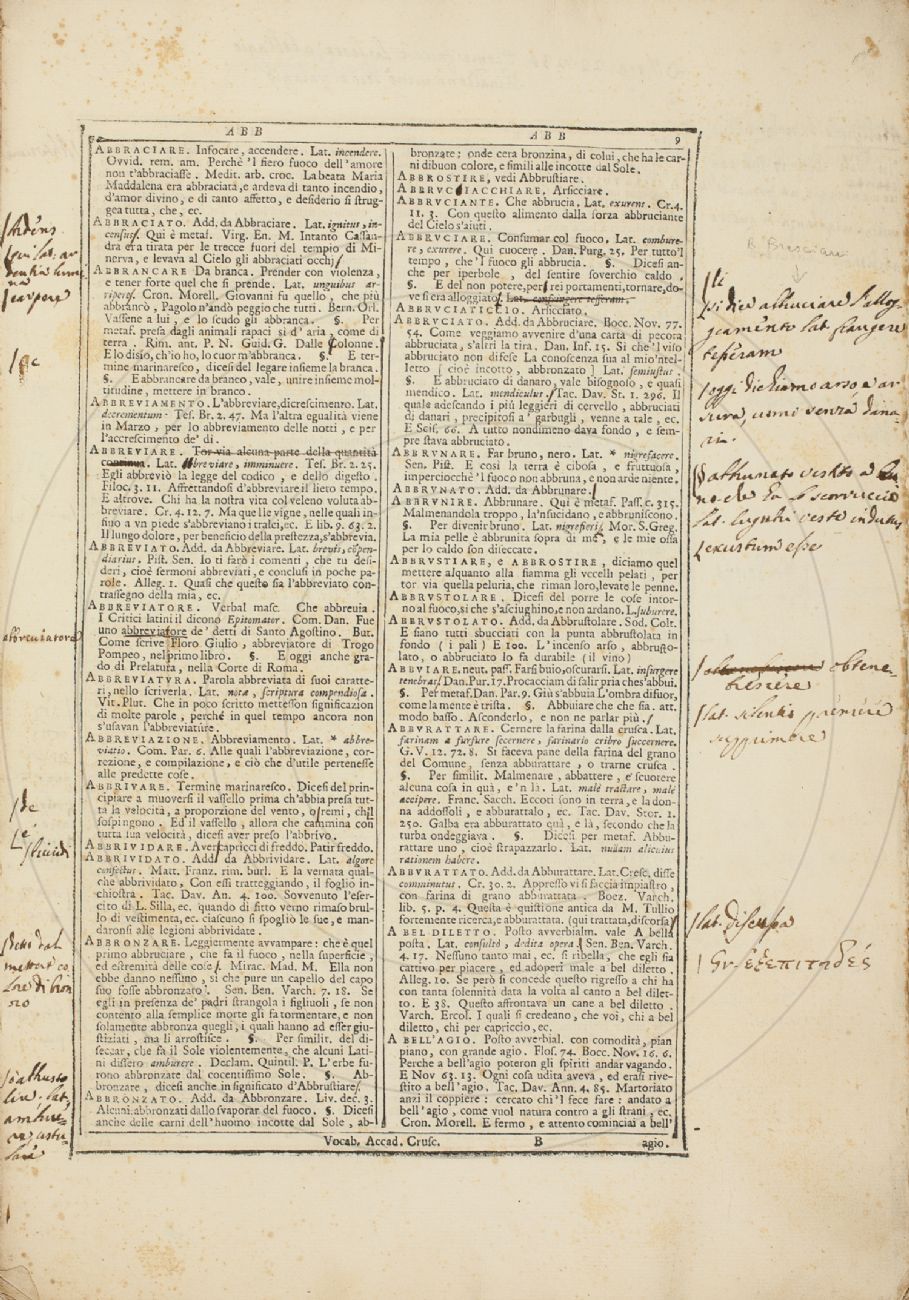 ABB
ABB 9
ABBRACIARE. Infocare, accendere. Lat. incendere.
Ovvid. rem. am. Perchè 'l fiero fuoco dell'amore
non t'abbraciasse. Medit. arb. croc. La beata Maria
Maddalena era abbraciata, e ardeva di tanto incendio,
d'amor divino, e di tanto affetto, e desiderio si strug-
gea tutta, che, ec.
ABBRACIATO. Add. da Abbraciare. Lat. ignitus, in-
census. Qui è metaf. Virg. En. M. Intanto Cassan-
dra era tirata per le trecce fuori del tempio di Mi-
nerva, e levava al Cielo gli abbraciati occhj
ABBRANCARE Da branca. Prender con violenza,
e tener forte quel che si prende. Lat. unguibus ar-
ripere. Cron. Morell. Giovanni fu quello, che più
abbrancò, Pagolo n'andò peggio che tutti. Bern. Orl.
Vassene a lui, e lo scudo gli abbranca. §. Per
metaf. presa dagli animali rapaci si d'aria, come di
terra. Rim. ant. P. N. Guid. G. Dalle Colonne.
E lo disio, ch'io ho, lo cuor m'abbranca. §. E ter-
mine marinaresco, dicesi del legare insieme la branca.
§. E abbrancare da branco, vale, unire insieme mol-
titudine, mettere in branco.
ABBREVIAMENTO. L'abbreviare, dicrescimento. Lat.
decrementum. Tes. Br. 2. 47. Ma l'altra egualità viene
in Marzo, per lo abbreviamento delle notti, e per
l'accrescimento de' di.
ABBREVIARE. Tor via alcuna parte della quantità
continua. Lat. abbreviare, imminuere. Tes. Br. 2. 25.
Egli abbreviò la legge del codico, e dello digesto.
Filoc. 3. 11. Affrettandosi d'abbreviare il lieto tempo.
E altrove. Chi ha la nostra vita col veleno voluta ab-
breviare. Cr. 4. 12. 7. Ma que lle vigne, nelle quali in-
sino a vn piede s'abbreviano i tralci, ec. E lib. 9. 63. 2.
Il lungo dolore, per beneficio della prestezza, s'abbrevia.
ABBREVIATO. Add. da Abbreviare. Lat. brevis, compen-
diarius. Pist. Sen. Io ti farò i comenti, che tu desi-
deri, cioè sermoni abbreviati, e conclusi in poche pa-
role. Alleg. 1. Quasi che questo sia l'abbreviato con-
trassegno della mia, ec.
ABBREVIATORE. Verbal masc. Che abbreuia.
I Critici latini il dicono Epitomator. Com. Dan. Fue
uno abbreviatore de' detti di Santo Agostino. But.
Come scrive Floro Giulio, abbreviatore di Trogo
Pompeo, nel primo libro. §. E oggi anche gra-
do di Prelatura, nella Corte di Roma.
ABBREVIATVRA. Parola abbreviata di suoi caratte-
ri, nello scriverla. Lat. nota, scriptura compendiosa.
Vit. Plut. Che in poco scritto mettesson significazion
di molte parole, perché in quel tempo ancora non
s'usavan l'abbreviature.
ABBREVIAZIONE. Abbreviamento. Lat. * abbre-
viatio. Com. Par. 6. Alle quali l'abbreviazione, cor-
rezione, e compilazione, e ciò che d'utile pertenesse
alle predette cose.
ABBRIVARE. Termine marinaresco. Dicesi del prin-
cipiare a muoversi il vassello prima ch'abbia presa tut-
ta la velocità, a proporzione del vento, o remi, chi'l
sospingono. Ed il vassello, allora che cammina con
tutta sua velocità, dicesi aver preso l'abbrivo.
ABBRIVIDARE. Aver capricci di freddo. Patir freddo.
ABBRIVIDATO. Add. da Abbrividare. Lat. algore
confectus. Matt. Franz. rim. burl. E la vernata qual-
che abbrividato, Con essi tratteggiando, il foglio in-
chiostra. Tac. Dav. An. 4. 100. Sovvenuto l'eser-
cito di L. Silla, ec. quando di fitto verno rimaso brul-
lo di vestimenta, ec. ciascuno si spogliò le sue, e man-
daronsi alle legioni abbrividate.
ABBRONZARE. Leggiermente avvampare: che è quel
primo abbruciare, che fa il fuoco, nella superficie,
ed estremità delle cose. Mirac. Mad. M. Ella non
ebbe danno nessuno, si che pure un capello del capo
suo fosse abbronzato. Sen. Ben. Varch. 7. 18. Se
egli in presenza de' padri strangola i figliuoli, se non
contento alla semplice morte gli fa tormentare, e non
solamente abbronza quegli, i quali hanno ad esser giu-
stiziati, ma li arrostisce. §. Per similit. del di-
seccar, che fa il Sole violentemente, che alcuni Lati-
ni dissero amburere. Declam. Quintil. P. L'erbe fu-
rono abbronzate dal cocentissimo Sole. §. Ab-
bronzare, dicesi anche in significato d'Abbrustiare.
ABBRONZATO. Add. da Abbronzare. Liv. dec. 3.
Alcuni abbronzati dallo svaporar del fuoco. §. Dicesi
anche delle carni dell'huomo incotte dal Sole, ab-
bronzate: onde cera bronzina, di colui, che ha le car-
ni di buon colore, e simili alle incotte dal Sole.
ABBROSTIRE, vedi Abbrustiare.
ABBRVCIACCHIARE, Arsicciare.
ABBRVCIANTE. Che abbrucia, Lat. exurens. Cr. 4.
11. 3. Con questo alimento dalla forza abbruciante
del Cielo s'aiuti.
ABBRVCIARE. Consumar col fuoco. Lat. combure-
re, exurere. Qui cuocere. Dan. Purg. 25. Per tutto 'l
tempo, che 'l fuoco gli abbrucia. §. Dicesi an-
che per iperbole, del sentire soverchio caldo.
§. E del non potere, per rei portamenti, tornare, do-
ve si era alloggiato. Lat. confringere tesseram.
ABBRVCIATICCIO. Arsicciato.
ABBRVCIATO. Add. da Abbruciare. Bocc. Nov. 77.
54. Come veggiamo avvenire d'una carta di pecora
abbruciata, s'altri la tira. Dan. Inf. 15. Si che 'l viso
abbruciato non difese La conoscenza sua al mio 'ntel-
letto [cioè incotto, abbronzato] Lat. semiustus.
§. E abbruciato di danaro, vale bisognoso, e quasi
mendico. Lat. mendiculus. Tac. Dav. St. 1. 296. Il
quale adescando i più leggieri di cervello, abbruciati
di danari, precipitosi a' garbugli, venne a tale, ec.
E Scis. 66. A tutto nondimeno dava fondo, e sem-
pre stava abbruciato.
ABBRVNARE. Far bruno, nero. Lat. * nigrefacere.
Sen. Pist. E così la terra è cibosa, e fruttuosa,
imperciocchè 'l fuoco non abbruna, e non arde niente.
ABBRVNATO. Add. da Abbrunare.
ABBRVNIRE. Abbrunare. Qui è metaf. Pass. c. 315.
Malmenandola troppo, la 'nsucidano, e abbruniscono.
§. Per divenir bruno. Lat. nigrefieri. Mor. S. Greg.
La mia pelle è abbrunita sopra di me, e le mie ossa
per lo caldo son diseccate.
ABBRVSTIARE, e ABBROSTIRE, diciamo quel
mettere alquanto alla fiamma gli vccelli pelati, per
tor via quella peluria, che riman loro, levate le penne.
ABBRVSTOLARE. Dicesi del porre le cose intor-
no al fuoco, si che s'asciughino, e non ardano. L. suburere.
ABBRVSTOLATO. Add. da Abbrustolare. Sod. Colt.
E siano tutti sbucciati con la punta abbrustolata in
fondo (i pali) E 100. L'incenso arso, abbrusto-
lato, o abbruciato lo fa durabile (il vino)
ABVIARE. neut. pass. Farsi buio, oscurarsi. Lat. insurgere
tenebras. Dan. Pur. 17. Procacciam di salir pria ch es'abbui.
§. Per metaf. Dan. Par. 9. Giù s'abbuia L'ombra di fuor,
come la mente è trista. §. Abbuiare che che sia. att.
modo basso. Asconderlo, e non ne parlar più.
ABBVRATTARE. Cernere la farina dalla crusca. Lat.
farinam a furfure secernere, farinario cribro succernere.
G. V. 12. 72. 8. Si faceva pane della farina del grano
del Comune, senza abburattare, o trarne crusca.
§. Per similit. Malmenare, abbattere, e scuotere
alcuna cosa in quà, e 'n là. Lat. malè tractare, malè
accipere. Franc. Sacch. Eccoti sono in terra, e la don-
na addossoli, e abburattalo, ec. Tac. Dav. Stor. 1.
250. Galba era abburattato quà, e là, secondo che la
turba ondeggiava. §. Dicesi per metaf. Abbu-
rattare uno, cioè strapazzarlo. Lat. nullam alicuius
rationem habere.
ABBVRATTATO. Add. da Abburattare. Lat. Cresc. disse
comminutus. Cr. 30. 2. Appresso vi si faccia impiastro,
con farina di grano abburattata. Boez. Varch.
lib. 5. p. 4. Questa è quistione antica da M. Tullio
fortemente ricerca, e abburattata. (qui trattata, discorsa)
A BEL DILETTO. Posto avverbialm. vale A bella
posta. Lat. consultò, dedita opera. Sen. Ben. Varch.
4. 17. Nessuno tanto mai, ec. si ribella, che egli sia
cattivo per piacere, ed adoperi male a bel diletto.
Alleg. 10. Se però si concede questo rigresso a chi ha
con tanta solennità data la volta al canto a bel dilet-
to. E 38. Questo affrontava un cane a bel diletto.
Varch. Ercol. I quali si credeano, che voi, chi a bel
diletto, chi per capriccio, ec.
A BELL'AGIO. Posto avverbial. con comodità, pian
piano, con grande agio. Flos. 74. Bocc. Nov. 16. 6.
Perche a bell'agio poteron gli spiriti andar vagando.
E Nov 63. 13. Ogni cosa udita aveva, ed erasi rive-
stito a bell'agio. Tac. Dav. Ann. 4. 85. Martoriato
anzi il coppiere: cercato chi 'l fece fare: andato a
bell'agio, come vuol natura contro a gli strani, ec.
Cron. Morell. E fermo, e attento cominciai a bell'
Vocab. Accad. Crusc. B agio.
abbreviatore
de
è
si dice abbuciare l'allog-
giamento lat. frangere
tesseram
oggi diciamo arso e ar-
sura, uomi senza dana-
ri.
exustum esse
obtene-
brescere
lat. discussa
Gr. ἐξεπιτηδές